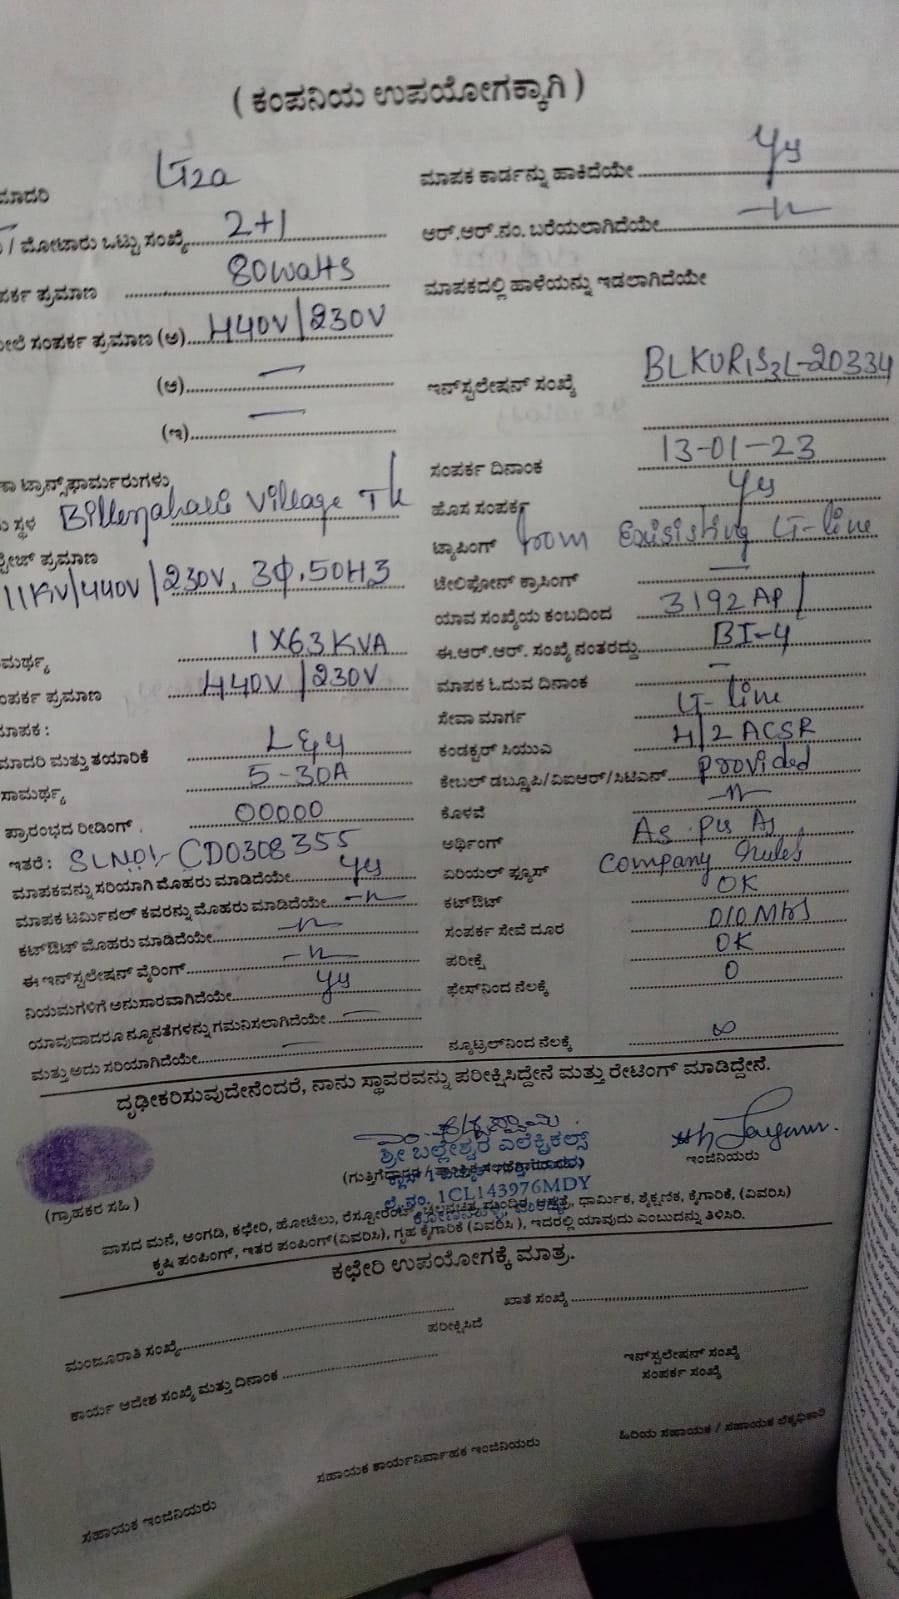 ( ಕಂಪನಿಯ ಉಪಯೋಗಕ್ಕಾಗಿ )
ಮಾದರಿ LT2a
/ ಮೋಟಾರು ಒಟ್ಟು ಸಂಖ್ಯೆ 2+1
ಪರ್ಕ ಪ್ರಮಾಣ 80watts
ಸಂಪರ್ಕ ಪ್ರಮಾಣ (ಅ) 440V/230V
(ಆ) —
(ಇ) —
ಟ್ರಾನ್ಸ್‌ಫಾರ್ಮರುಗಳು
ಸ್ಥಳ Village Tk
ಪ್ರಮಾಣ
11KV/440V/230V, 3Φ, 50HZ
ಮರ್ಥ್ಯ 1X63KVA
ಂಪರ್ಕ ಪ್ರಮಾಣ 440V/230V
ಮಾಪಕ :
ಮಾದರಿ ಮತ್ತು ತಯಾರಿಕೆ L&y
ಸಾಮರ್ಥ್ಯ 5-30A
ಪ್ರಾರಂಭದ ರೀಡಿಂಗ್ 00000
ಇತರೆ : SLNO:- CD0308355
ಮಾಪಕವನ್ನು ಸರಿಯಾಗಿ ಮೊಹರು ಮಾಡಿದೆಯೇ yes
ಮಾಪಕ ಟರ್ಮಿನಲ್ ಕವರನ್ನು ಮೊಹರು ಮಾಡಿದೆಯೇ -"-
ಕಟ್‌ಔಟ್ ಮೊಹರು ಮಾಡಿದೆಯೇ -"-
ಈ ಇನ್‌ಸ್ಟಲೇಷನ್ ವೈರಿಂಗ್ -"-
ನಿಯಮಗಳಿಗೆ ಅನುಸಾರವಾಗಿದೆಯೇ yes
ಯಾವುದಾದರೂ ನ್ಯೂನತೆಗಳನ್ನು ಗಮನಿಸಲಾಗಿದೆಯೇ —
ಮತ್ತು ಅದು ಸರಿಯಾಗಿದೆಯೇ —
ಮಾಪಕ ಕಾರ್ಡನ್ನು ಹಾಕಿದೆಯೇ Yes
ಆರ್.ಆರ್.ನಂ. ಬರೆಯಲಾಗಿದೆಯೇ -"-
ಮಾಪಕದಲ್ಲಿ ಹಾಳೆಯನ್ನು ಇಡಲಾಗಿದೆಯೇ
ಇನ್‌ಸ್ಟಲೇಷನ್ ಸಂಖ್ಯೆ
ಸಂಪರ್ಕ ದಿನಾಂಕ 13-01-23
ಹೊಸ ಸಂಪರ್ಕ Yes
ಟ್ಯಾಪಿಂಗ್ from Exisisting LT-line
ಟೆಲಿಫೋನ್ ಕ್ರಾಸಿಂಗ್ —
ಯಾವ ಸಂಖ್ಯೆಯ ಕಂಬದಿಂದ 3192AP/
ಈ.ಆರ್.ಆರ್. ಸಂಖ್ಯೆ ನಂತರದ್ದು BI-4
ಮಾಪಕ ಓದುವ ದಿನಾಂಕ —
ಸೇವಾ ಮಾರ್ಗ LT-line
ಕಂಡಕ್ಟರ್ ಸಿಯುವಿ 4/2 ACSR
ಕೇಬಲ್ ಡಬ್ಲೂಪಿ/ವಿಐಆರ್/ಸಿಟಿಎನ್ provided
ಕೊಳವೆ -"-
ಅರ್ಥಿಂಗ್ As per
ಏರಿಯಲ್ ಫ್ಯೂಸ್ Company Rules
ಕಟ್‌ಔಟ್ OK
ಸಂಪರ್ಕ ಸೇವೆ ದೂರ 010Mtrs
ಪರೀಕ್ಷೆ OK
ಫೇಸ್‌ನಿಂದ ನೆಲಕ್ಕೆ 0
ನ್ಯೂಟ್ರಲ್‌ನಿಂದ ನೆಲಕ್ಕೆ ∞
ದೃಢೀಕರಿಸುವುದೇನೆಂದರೆ, ನಾನು ಸ್ಥಾವರವನ್ನು ಪರೀಕ್ಷಿಸಿದ್ದೇನೆ ಮತ್ತು ರೇಟಿಂಗ್ ಮಾಡಿದ್ದೇನೆ.
ಶ್ರೀ ಬಲ್ಲೇಶ್ವರ ಎಲೆಕ್ಟ್ರಿಕಲ್ಸ್
ಲೈ.ನಂ. 1CL143976MDY
(ಗ್ರಾಹಕರ ಸಹಿ)
ಇಂಜಿನಿಯರು
ವಾಸದ ಮನೆ, ಅಂಗಡಿ, ಕಛೇರಿ, ಹೋಟೆಲು, ರೆಸ್ಟೋರೆಂಟ್, ಚಲನಚಿತ್ರ ಮಂದಿರ, ಆಸ್ಪತ್ರೆ, ಧಾರ್ಮಿಕ, ಶೈಕ್ಷಣಿಕ, ಕೈಗಾರಿಕೆ, (ವಿವರಿಸಿ)
ಕೃಷಿ ಪಂಪಿಂಗ್, ಇತರ ಪಂಪಿಂಗ್(ವಿವರಿಸಿ), ಗೃಹ ಕೈಗಾರಿಕೆ (ವಿವರಿಸಿ ), ಇದರಲ್ಲಿ ಯಾವುದು ಎಂಬುದನ್ನು ತಿಳಿಸಿರಿ.
ಕಛೇರಿ ಉಪಯೋಗಕ್ಕೆ ಮಾತ್ರ.
ಮಂಜೂರಾತಿ ಸಂಖ್ಯೆ ಖಾತೆ ಸಂಖ್ಯೆ
ಪರೀಕ್ಷಿಸಿದೆ
ಕಾರ್ಯ ಆದೇಶ ಸಂಖ್ಯೆ ಮತ್ತು ದಿನಾಂಕ
ಇನ್‌ಸ್ಟಲೇಷನ್ ಸಂಖ್ಯೆ
ಸಂಪರ್ಕ ಸಂಖ್ಯೆ
ಸಹಾಯಕ ಇಂಜಿನಿಯರು
ಸಹಾಯಕ ಕಾರ್ಯನಿರ್ವಾಹಕ ಇಂಜಿನಿಯರು
ಹಿರಿಯ ಸಹಾಯಕ / ಸಹಾಯಕ ಲೆಕ್ಕಾಧಿಕಾರಿ